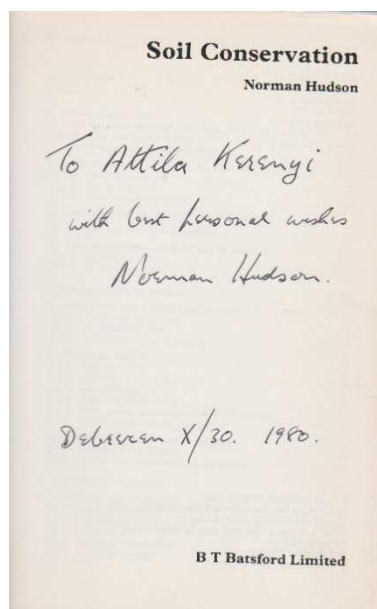 Soil Conservation
Norman Hudson
To Attila Kerenyi
with best personal wishes
Norman Hudson.
Debrecen X/30. 1980.
B T Batsford Limited